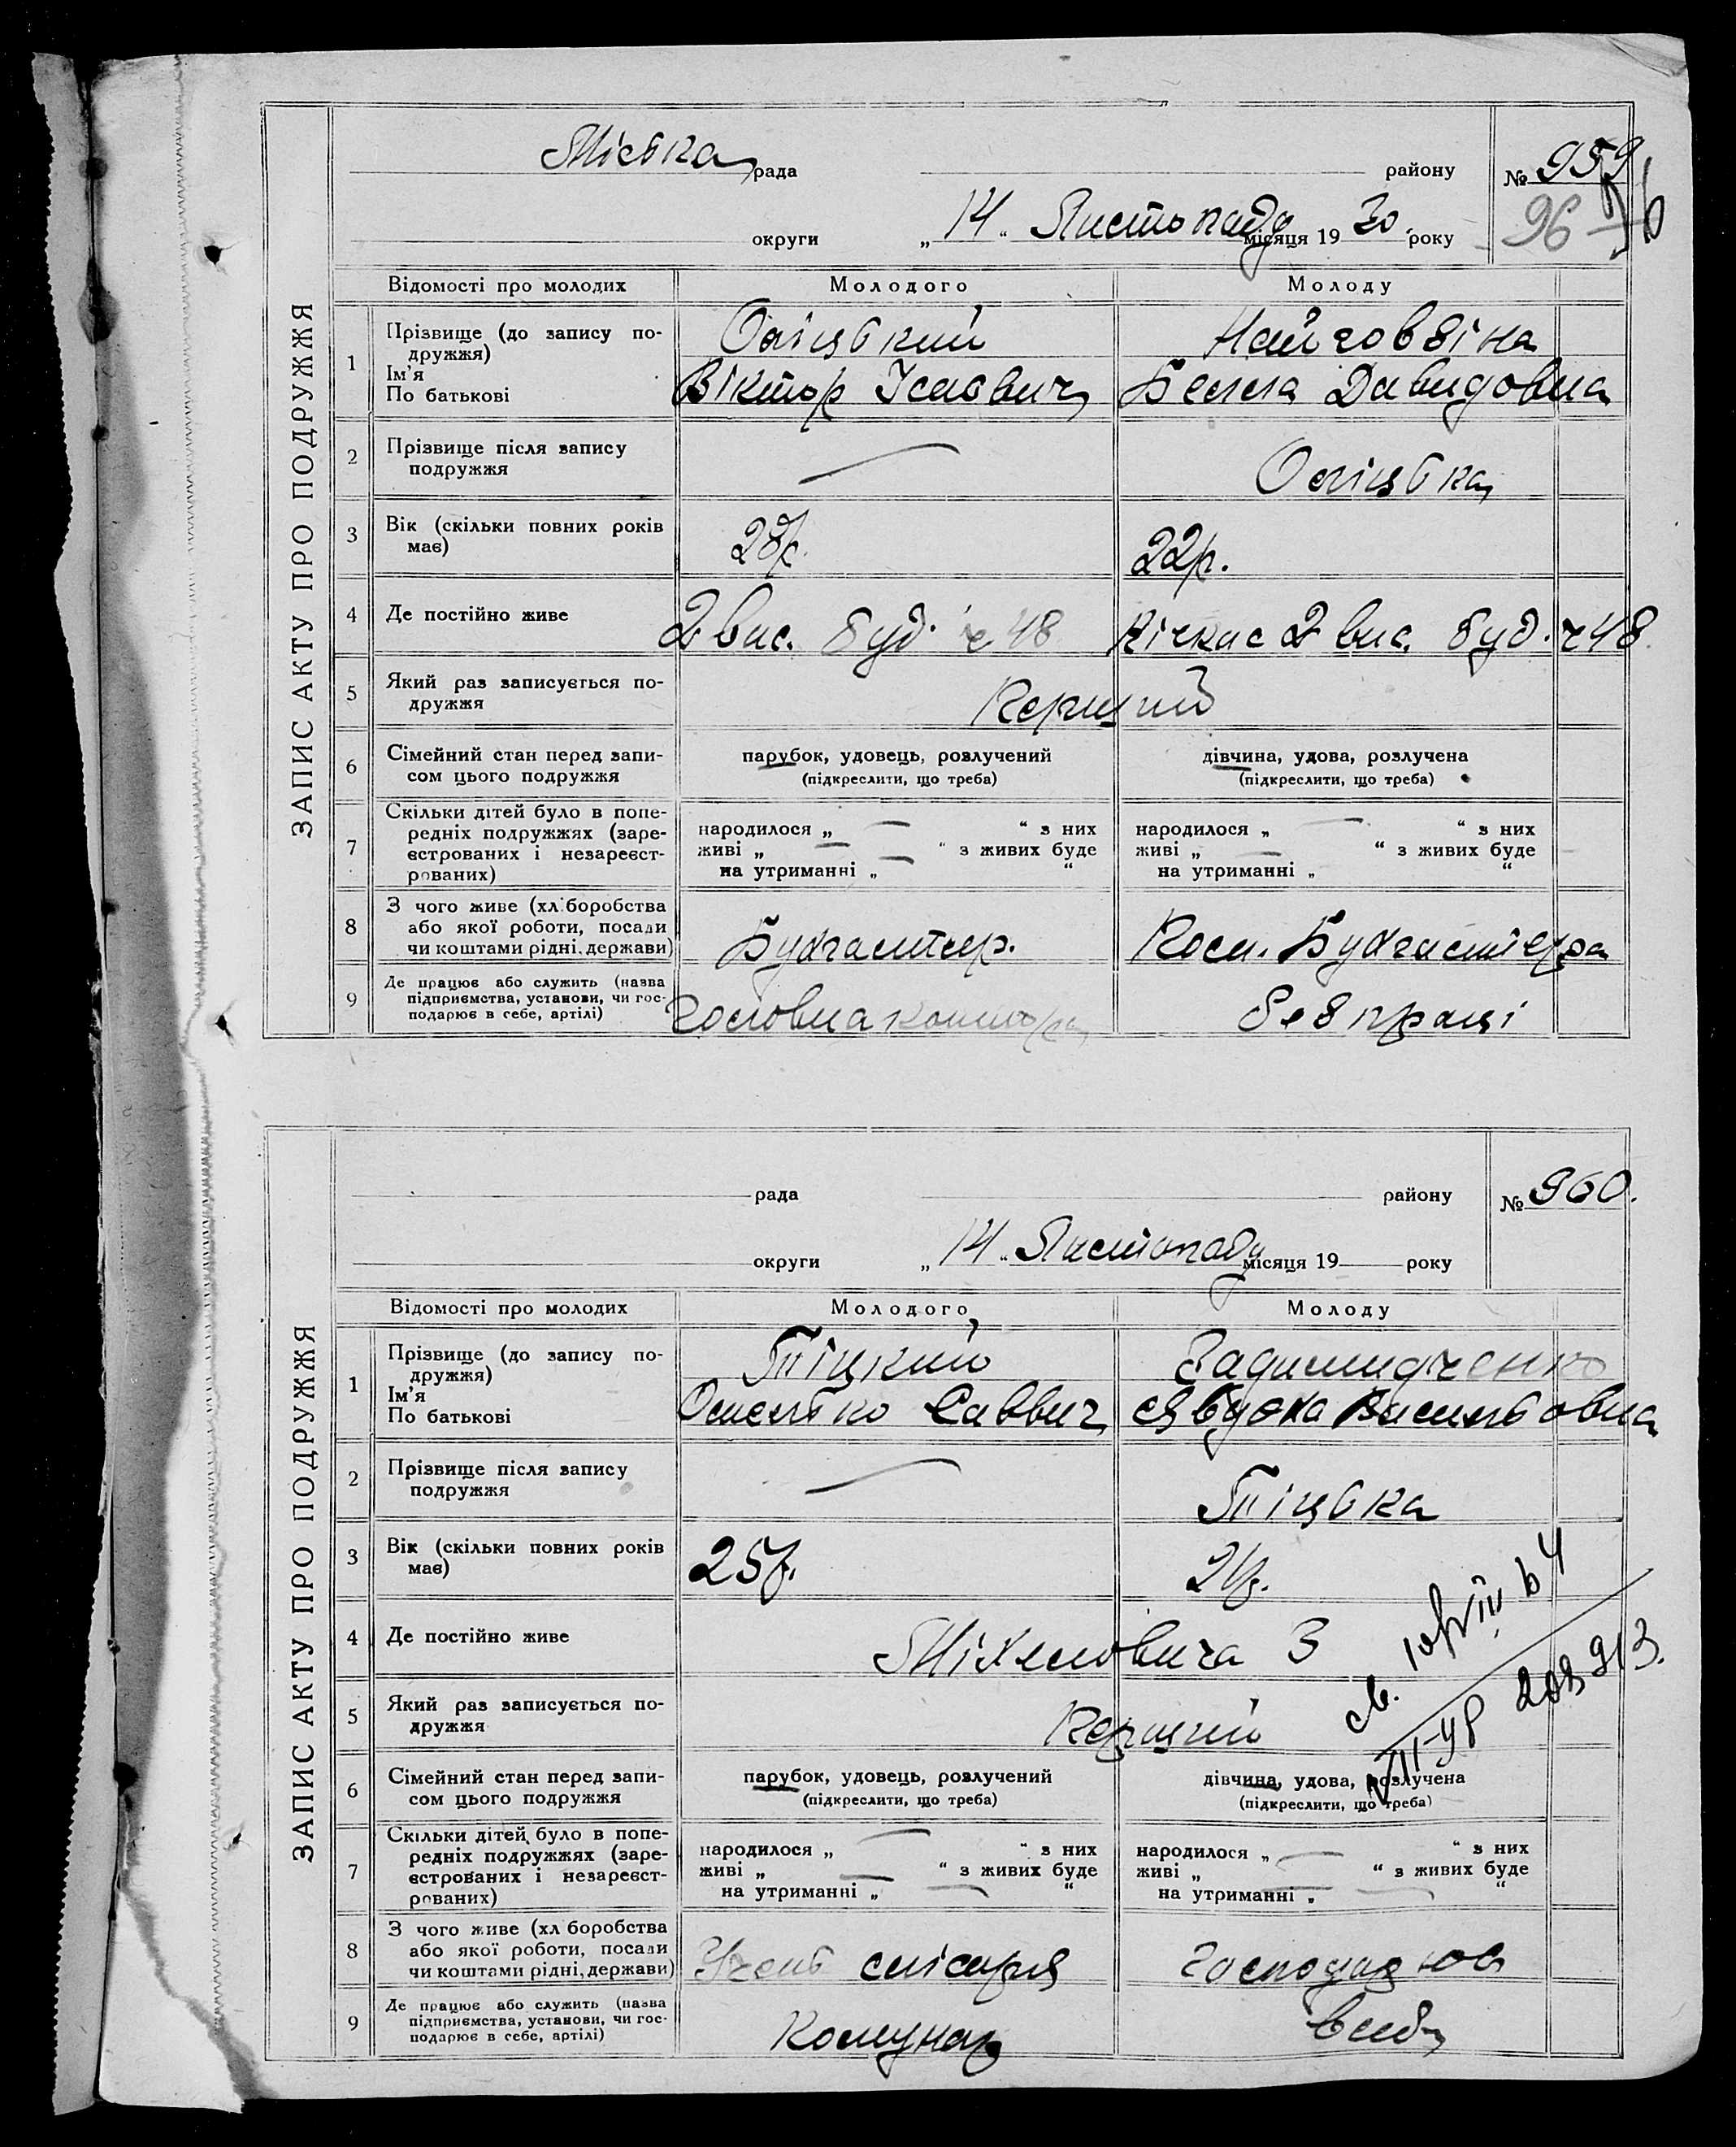 ЗАПИС АКТУ ПРО ПОДРУЖЖЯ
Міська рада району № 959
96
округи „14“ Листопада місяця 1930 року
Відомості про молодих Молодого Молоду
1 Прізвище (до запису по-
дружжя)
Ім’я
По батькові
Оліцький
Віктор Ісаович Белла Давидовна
2 Прізвище після запису
подружжя
— Оліцька
3 Вік (скільки повних років
має)
28р. 22р.
4 Де постійно живе
2 вис. буд. ч 48 Кічкас 2 вис. буд. ч 48
5 Який раз записується по-
дружжя
Перший
6 Сімейний стан перед запи-
сом цього подружжя
парубок, удовець, розлучений дівчина, удова, розлучена
(підкреслити, що треба) (підкреслити, що треба)
7 Скільки дітей було в попе-
редніх подружжях (заре-
єстрованих і незареєст-
рованих)
народилося „ — “ з них народилося „ — “ з них
живі „ — “ з живих буде живі „ — “ з живих буде
на утриманні „ — “ на утриманні „ “
8 З чого живе (хліборобства
або якої роботи, посади
чи коштами рідні, держави)
Бухгалтер. Пом. Бухгалтера
9 Де працює або служить (назва
підприємства, установи, чи гос-
подарює в себе, артілі)
Головна контора без праці
ЗАПИС АКТУ ПРО ПОДРУЖЖЯ
рада району № 960.
округи „14“ Листопада місяця 19 року
Відомості про молодих Молодого Молоду
1 Прізвище (до запису по-
дружжя)
Ім’я
По батькові
Тіцкий
Омелько Саввич Явдоха Васильовна
2 Прізвище після запису
подружжя
— Тіцька
3 Вік (скільки повних років
має)
25р. 21р.
4 Де постійно живе
Міхеловича 3
5 Який раз записується по-
дружжя
Перший
6 Сімейний стан перед запи-
сом цього подружжя
парубок, удовець, розлучений дівчина, удова, розлучена
(підкреслити, що треба) (підкреслити, що треба)
7 Скільки дітей було в попе-
редніх подружжях (заре-
єстрованих і незареєст-
рованих)
народилося „ — “ з них народилося „ — “ з них
живі „ — “ з живих буде живі „ — “ з живих буде
на утриманні „ — “ на утриманні „ — “
8 З чого живе (хліборобства
або якої роботи, посади
чи коштами рідні, держави)
Учень слісаря
9 Де працює або служить (назва
підприємства, установи, чи гос-
подарює в себе, артілі)
Комунар